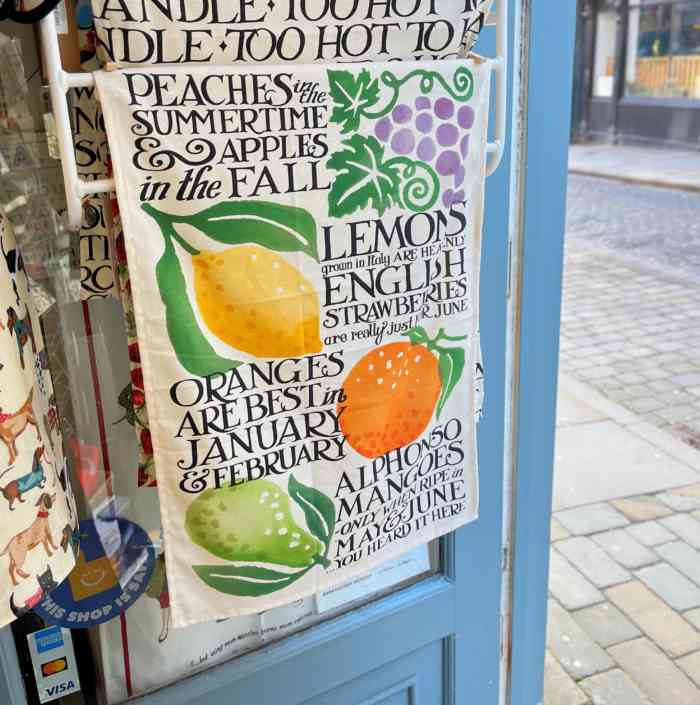 ANDLE • TOO HOT T
NDLE • TOO HOT TO
PEACHES in the
SUMMERTIME
& APPLES
in the FALL
LEMONS
grown in Italy ARE HEAVENLY
ENGLISH
STRAWBERRIES
are really just FOR JUNE
ORANGES
ARE BEST in
JANUARY
& FEBRUARY
ALPHONSO
MANGOES
-ONLY WHEN RIPE in
MAY & JUNE
YOU HEARD IT HERE
THIS SHOP IS SA
VISA